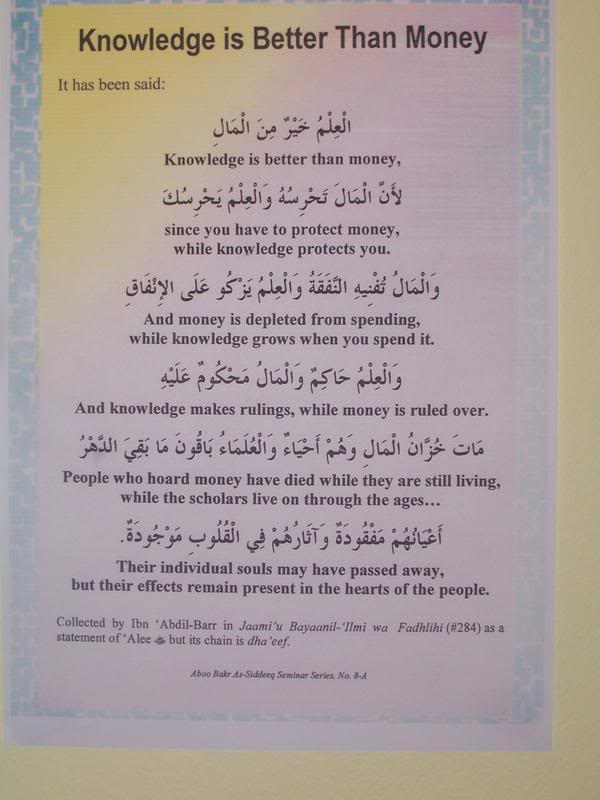 Knowledge is Better Than Money
It has been said:
الْعِلْمُ خَيْرٌ مِنَ الْمَالِ
Knowledge is better than money,
لأَنَّ الْمَالَ تَحْرِسُهُ وَالْعِلْمُ يَحْرِسُكَ
since you have to protect money,
while knowledge protects you.
وَالْمَالُ تُفْنِيهِ النَّفَقَةُ وَالْعِلْمُ يَزْكُو عَلَى الإِنْفَاقِ
And money is depleted from spending,
while knowledge grows when you spend it.
وَالْعِلْمُ حَاكِمٌ وَالْمَالُ مَحْكُومٌ عَلَيْهِ
And knowledge makes rulings, while money is ruled over.
مَاتَ خُزَّانُ الْمَالِ وَهُمْ أَحْيَاءٌ وَالْعُلَمَاءُ بَاقُونَ مَا بَقِيَ الدَّهْرُ
People who hoard money have died while they are still living,
while the scholars live on through the ages...
أَعْيَانُهُمْ مَفْقُودَةٌ وَآثَارُهُمْ فِي الْقُلُوبِ مَوْجُودَةٌ.
Their individual souls may have passed away,
but their effects remain present in the hearts of the people.
Collected by Ibn ‘Abdil-Barr in Jaami‘u Bayaanil-‘Ilmi wa Fadhlihi (#284) as a
statement of ‘Alee but its chain is dha‘eef.
Aboo Bakr As-Siddeeq Seminar Series, No. 8-A